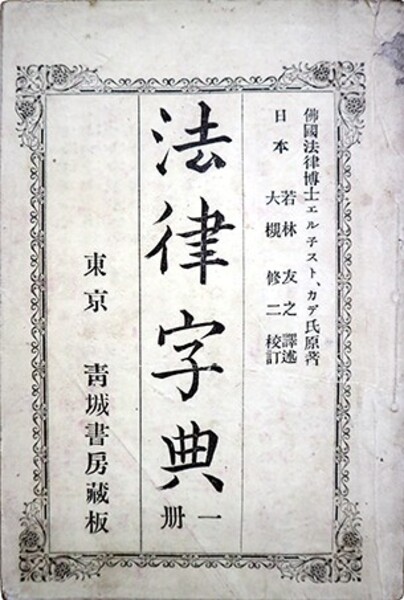 佛國法律博士エルネスト、カデ氏原著
日本 若林友之譯述
大槻修二校訂
法律字典
一册
東京 青城書房藏板